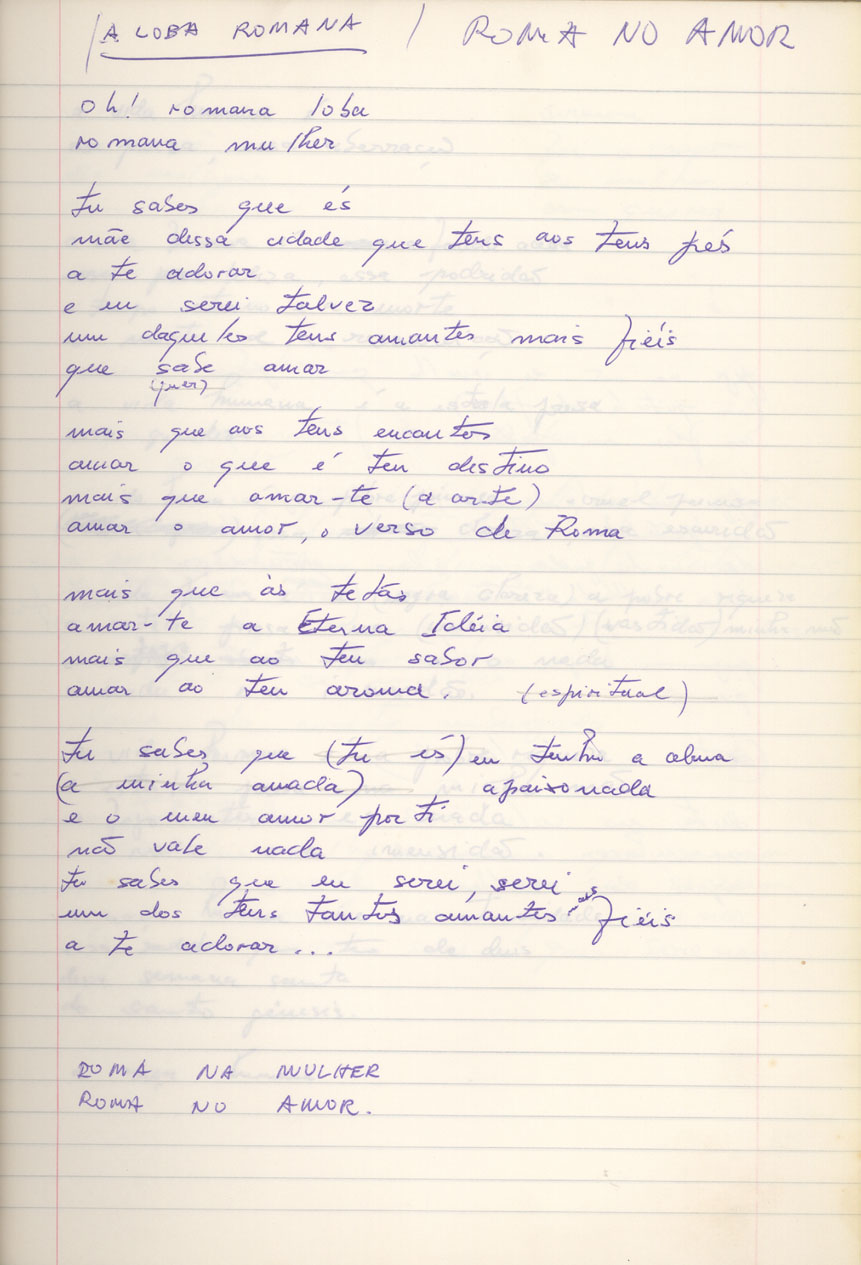 / A LOBA ROMANA / ROMA NO AMOR
Oh! romana loba
romana mulher
Tu sabes que és
mãe dessa cidade que tens aos teus pés
a te adorar
e eu serei talvez
um daqueles teus amantes mais fiéis
que sabe amar
(quer)
mais que aos teus encantos
amar o que é teu destino
mais que amar-te (a arte)
amar o amor, o verso de Roma
mais que às tetas
amar-te a Eterna Idéia
mais que ao teu sabor
amar ao teu aroma. (espiritual)
Tu sabes que (tu és) eu tenho a alma
(a minha amada) apaixonada
e o meu amor por ti
não vale nada
Tu sabes que eu serei, serei
um dos teus tantos amantes mais fiéis
a te adorar...
ROMA NA MULHER
ROMA NO AMOR.